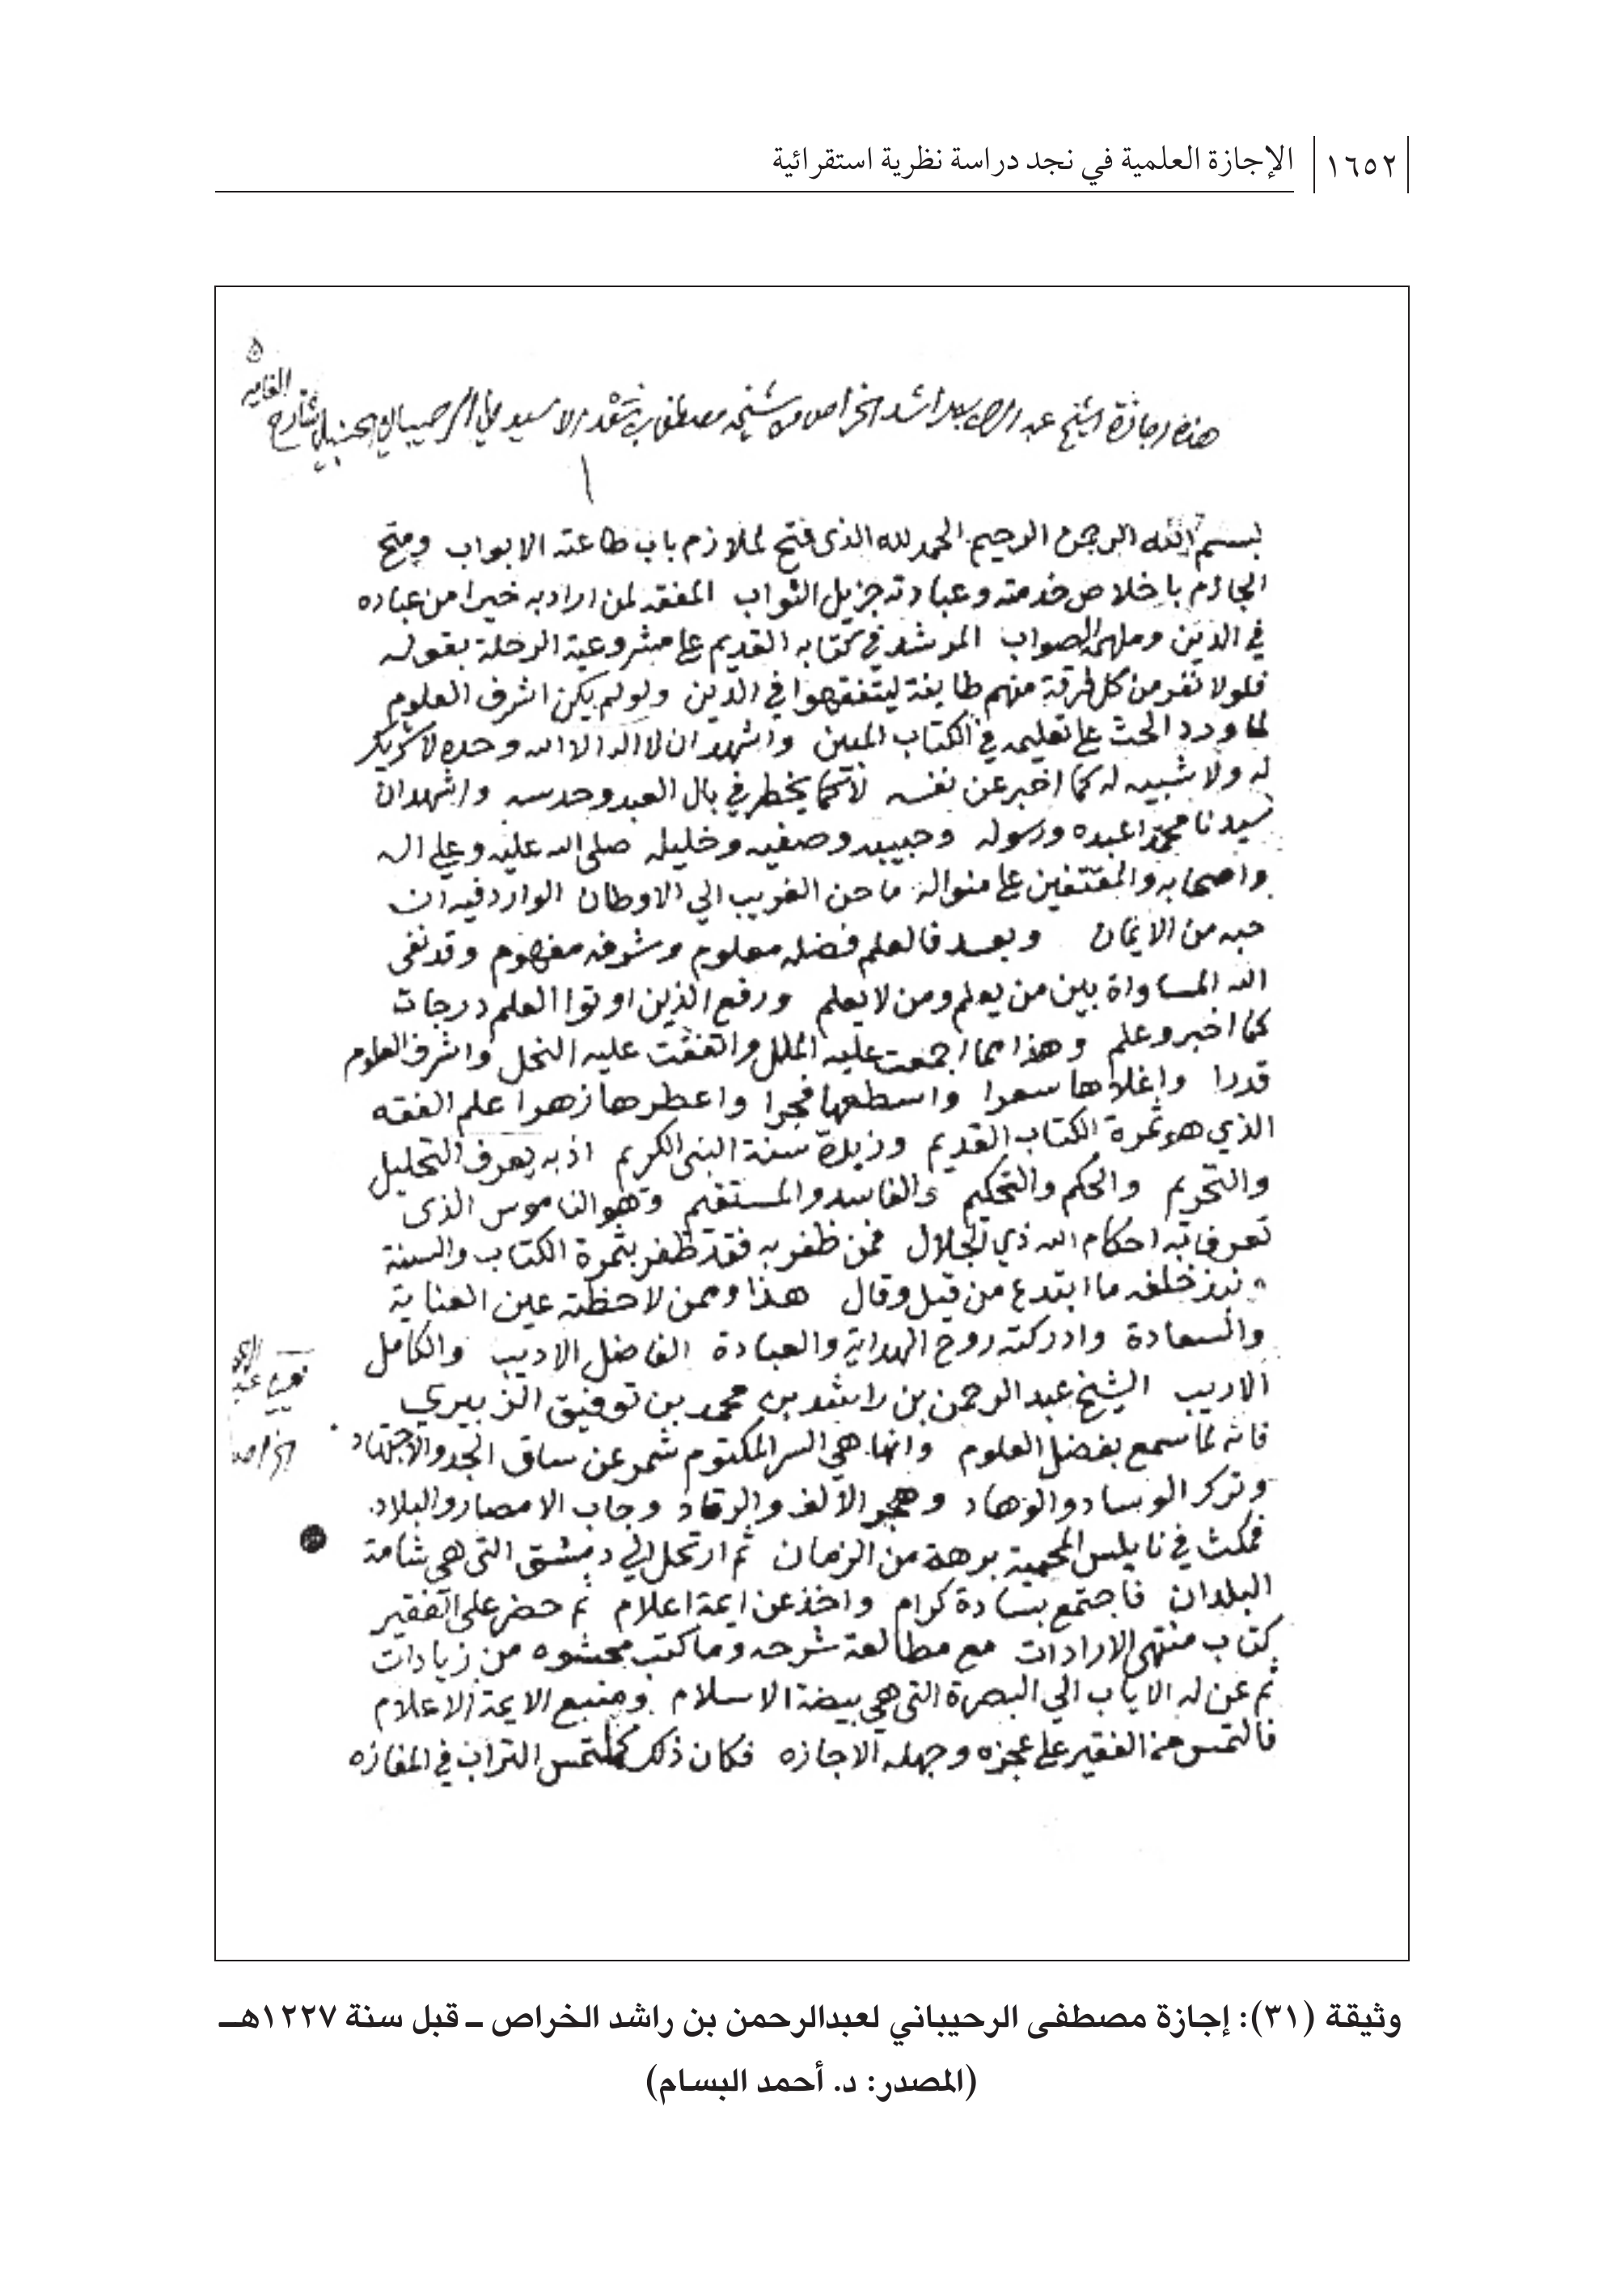 ١٦٥٢ الإجازة العلمية في نجد دراسة نظرية استقرائية
هذه اجازة الشيخ عبد الرحمن بن راشد الخراص من شيخه مصطفى بن سعد الاسيوطي الرحيباني الحنبلي شارح
الغايه
بسم الله الرحمن الرحيم الحمد لله الذي فتح لملازم باب طاعته الابواب ومنح
الجازم باخلاص خدمته وعبادته جزيل الثواب المفقه لمن اراد به خيرا من عباده
في الدين وملهمه الصواب المرشد في كتابه القديم على مشروعية الرحلة بقوله
فلولا نفر من كل فرقة منهم طايفة ليتفقهوا في الدين ولو لم يكن اشرف العلوم
لما ورد الحث على تعليمه في الكتاب المبين واشهد ان لا اله الا الله وحده لا شريك
له ولا شبيه له كما اخبر عن نفسه لا كما يخطر في بال العبد وحدسه واشهد ان
سيدنا محمدا عبده ورسوله وحبيبه وصفيه وخليله صلى الله عليه وعلى اله
واصحابه والمقتفين على منواله ما حن الغريب الي الاوطان الوارد فيه ان
حبه من الايمان وبعد فالعلم فضله معلوم وشرفه مفهوم وقد نفى
الله المساواة بين من يعلم ومن لا يعلم ورفع الذين اوتوا العلم درجات
كما اخبر وعلم وهذا مما اجمعت عليه الملل واتفقت عليه النحل واشرف العلوم
قدرا واغلاها سعرا واسطعها فجرا واعطرها زهرا علم الفقه
الذي هو ثمرة الكتاب القديم وزبدة سنة النبي الكريم اذ به يعرف التحليل
والتحريم والحكم والتحكيم والفاسد والمستقيم وهو الناموس الذي
تعرف به احكام الله ذي الجلال فمن ظفر به فقد ظفر بثمرة الكتاب والسنة
ونبذ خلفه ما ابتدع من قيل وقال هذا وممن لاحظته عين العناية
والسعادة وادركته روح الهداية والعبادة الفاضل الاديب والكامل
الاريب الشيخ عبد الرحمن بن راشد بن محمد بن توفيق الزبيري
فانه لما سمع بفضل العلوم وانها هي السر المكتوم شمر عن ساق الجد والاجتهاد
وترك الوساد والوهاد وهجر الالف والرقاد وجاب الامصار والبلاد
فمكث في نابلس المحمية برهة من الزمان ثم ارتحل الي دمشق التي هي شامة
البلدان فاجتمع بسادة كرام واخذ عن ايمة اعلام ثم حضر على الفقير
كتاب منتهى الارادات مع مطالعة شرحه وما كتب محشوه من زيادات
ثم عن له الاياب الي البصرة التي هي بيضة الاسلام ومنبع الايمة الاعلام
فالتمس من الفقير على عجزه وجهله الاجازه فكان ذلك كملتمس التراب في المفازه
الخراص
وثيقة (٣١): إجازة مصطفى الرحيباني لعبدالرحمن بن راشد الخراص ـ قبل سنة ١٢٢٧هـ
(المصدر: د. أحمد البسام)